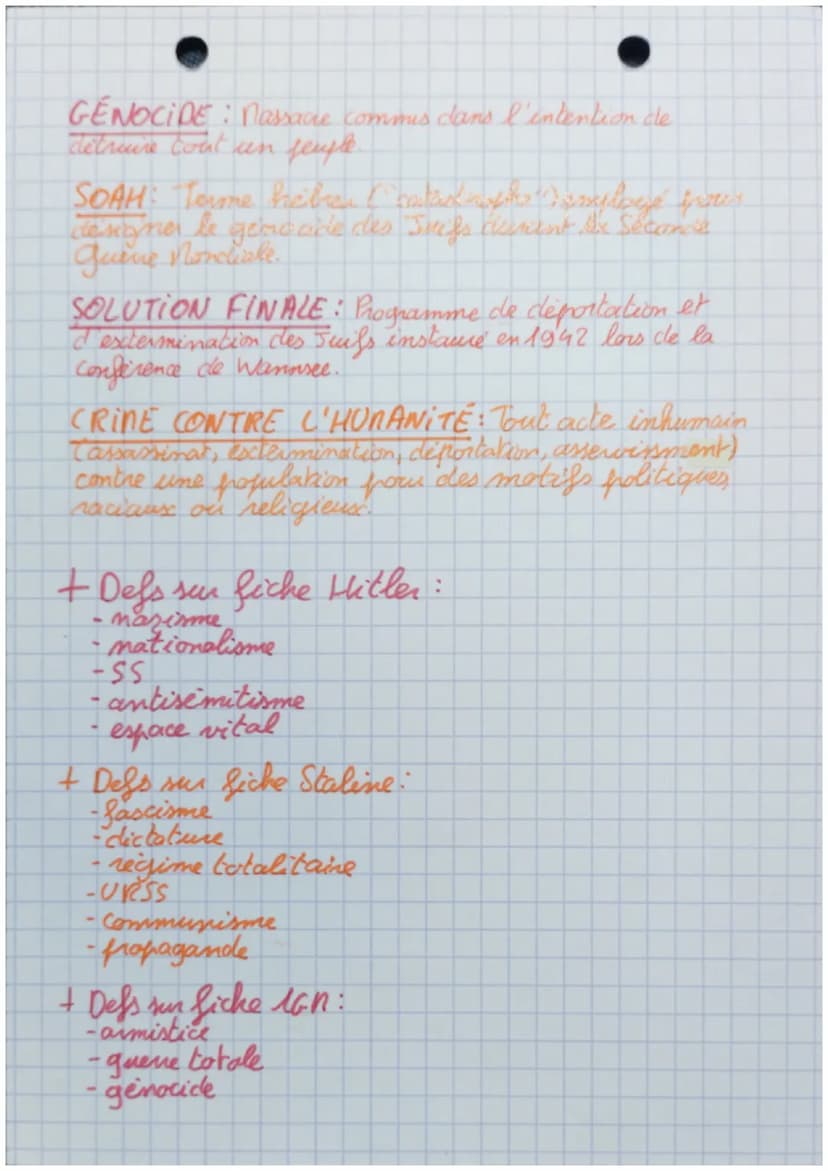 GÉNOCIDE : Massacre commis dans l'intention de
détruire tout un peuple.
SOAH : Terme hébreu ("catastrophe") employé pour
désigner le génocide des Juifs durant la Seconde
Guerre Mondiale.
SOLUTION FINALE : Programme de déportation et
d'extermination des Juifs instauré en 1942 lors de la
Conférence de Wannsee.
CRIME CONTRE L'HUMANITÉ : Tout acte inhumain
(assassinat, extermination, déportation, asservissment)
contre une population pour des motifs politiques,
raciaux ou religieux.
+ Defs sur fiche Hitler :
- nazisme
- nationalisme
- SS
- antisémitisme
- espace vital
+ Defs sur fiche Staline :
- fascisme
- dictature
- régime totalitaire
- URSS
- communisme
- propagande
+ Defs sur fiche 1GM :
- armistice
- guerre totale
- génocide